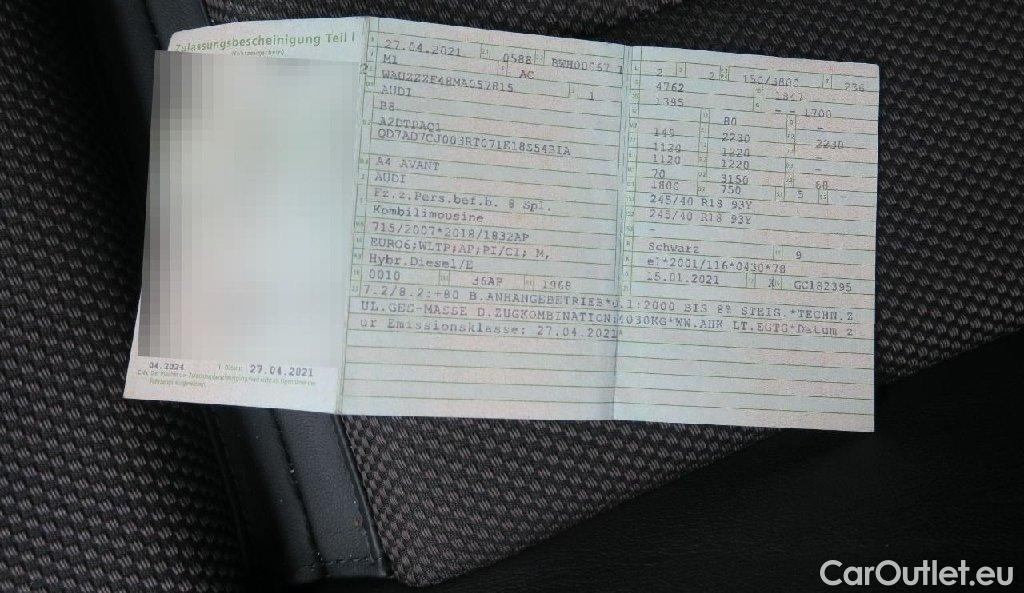 Zulassungsbescheinigung Teil I
04.2024 27.04.2021
27.04.2021 0588
M1 AC
1
AUDI
B8
A4 AVANT
AUDI
Fz.z.Pers.bef.b. 8 Spl.
Kombilimousine
715/2007*2018/1832AP
EURO6;WLTP;AP;PI/CI; M,
Hybr.Diesel/E
0010 36AP 1968
2 2 150/3800 236
4762 1847
1395 - - 1700
80 -
149 2230 2230
1120 1220 -
1120 1220 -
70 3150 60
1800 750 5 -
245/40 R18 93Y
245/40 R18 93Y
-
Schwarz 9
e1*2001/116*0430*78
15.01.2021 K GC182395
7.2/8.2:+80 B.ANHÄNGEBETRIEB*O.1:2000 BIS 8% STEIG.*TECHN.Z
UL.GES-MASSE D.ZUGKOMBINATION:4030KG*WW.AHK LT.EGTG*Datum z
ur Emissionsklasse: 27.04.2021*
CarOutlet.eu